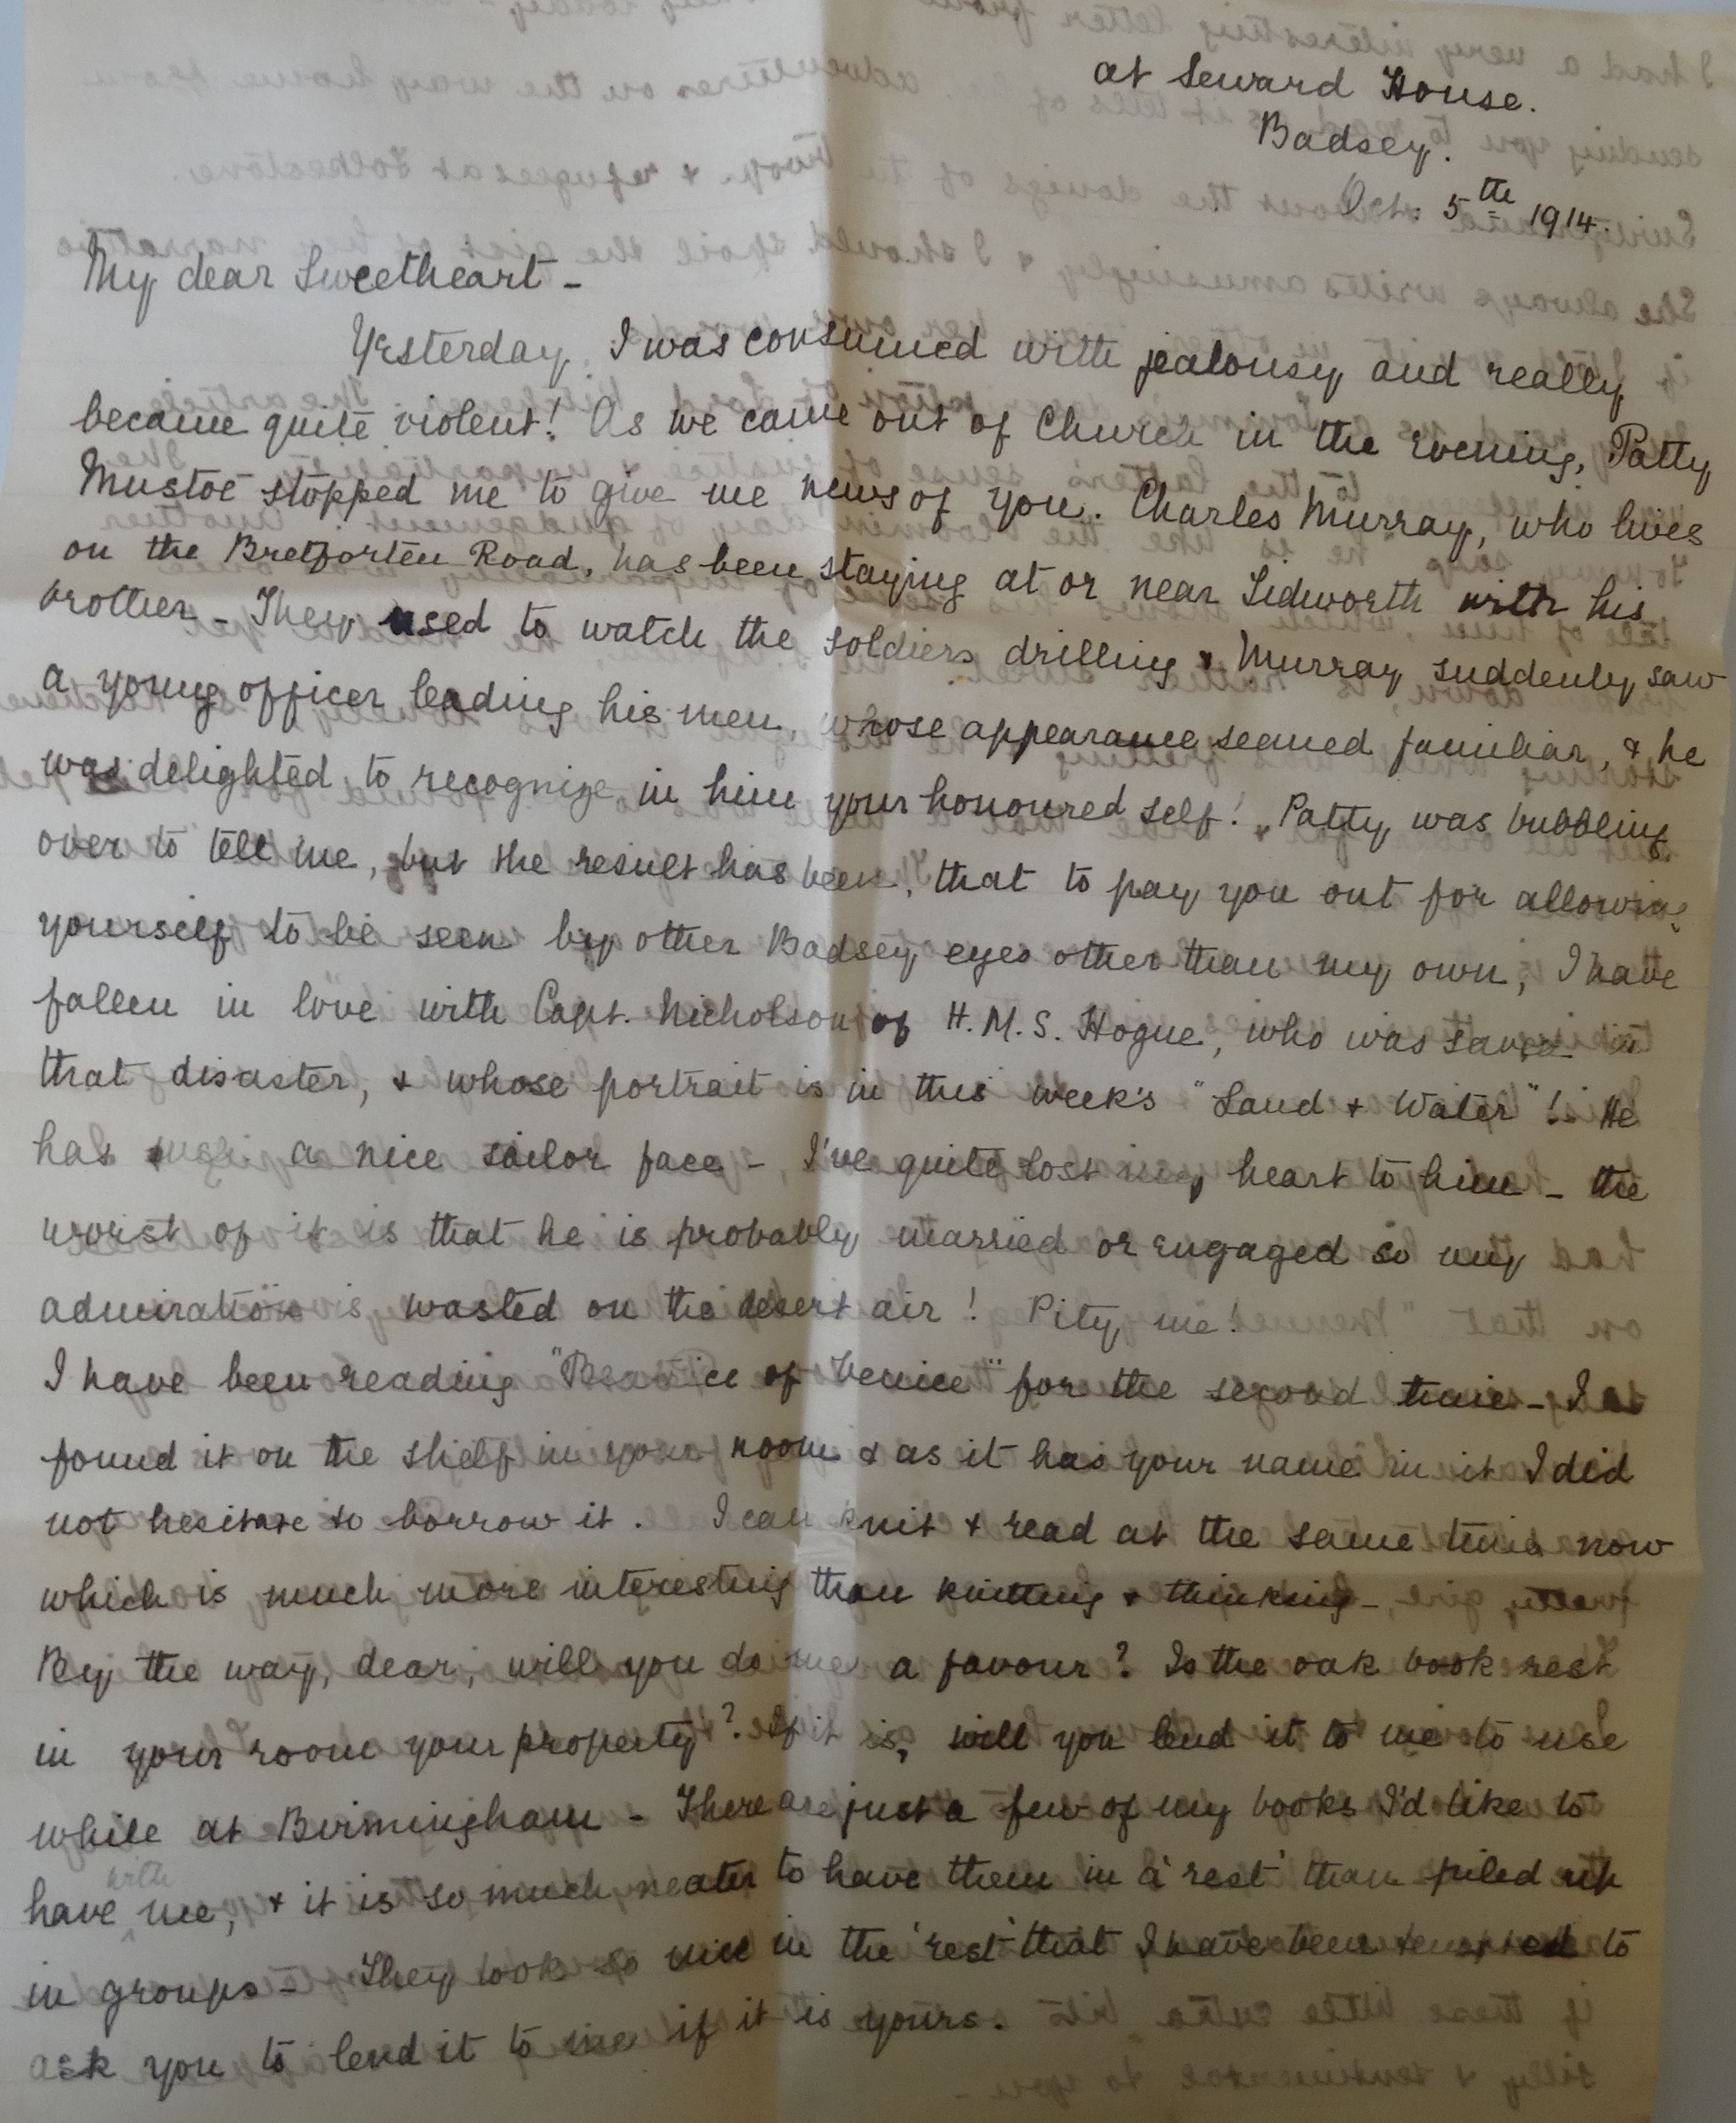 at Seward House.
Badsey.
Oct: 5th 1914.
My dear Sweetheart -
Yesterday, I was consumed with jealousy and really
became quite violent! As we came out of Church in the evening, Patty
Mustoe stopped me to give me news of you. Charles Murray, who lives
on the Bretforten Road, has been staying at or near Tidworth with his
brother - They used to watch the soldiers drilling & Murray suddenly saw
a young officer leading his men, whose appearance seemed familiar, & he
was delighted to recognize in him your honoured self! Patty was bubbling
over to tell me, but the result has been, that to pay you out for allowing
yourself to be seen by other Badsey eyes other than my own, I have
fallen in love with Capt. Nicholson of H.M.S. Hogue, who was saved in
that disaster, & whose portrait is in this week's "Land & Water"! He
has a nice sailor face - I've quite lost my heart to him - the
worst of it is that he is probably married or engaged so my
admiration is wasted on the desert air! Pity me!
I have been reading "Beatrice of Venice" for the second time - I
found it on the shelf in your room & as it has your name in it I did
not hesitate to borrow it. I can knit & read at the same time now
which is much more interesting than knitting & thinking -
By the way, dear, will you do me a favour? Is the oak book rest
in your room your property? If it is, will you lend it to me to use
while at Birmingham - There are just a few of my books I'd like to
have with me, & it is so much neater to have them in a 'rest' than piled up
in groups - They look so nice in the 'rest' that I have been tempted to
ask you to lend it to me if it is yours.